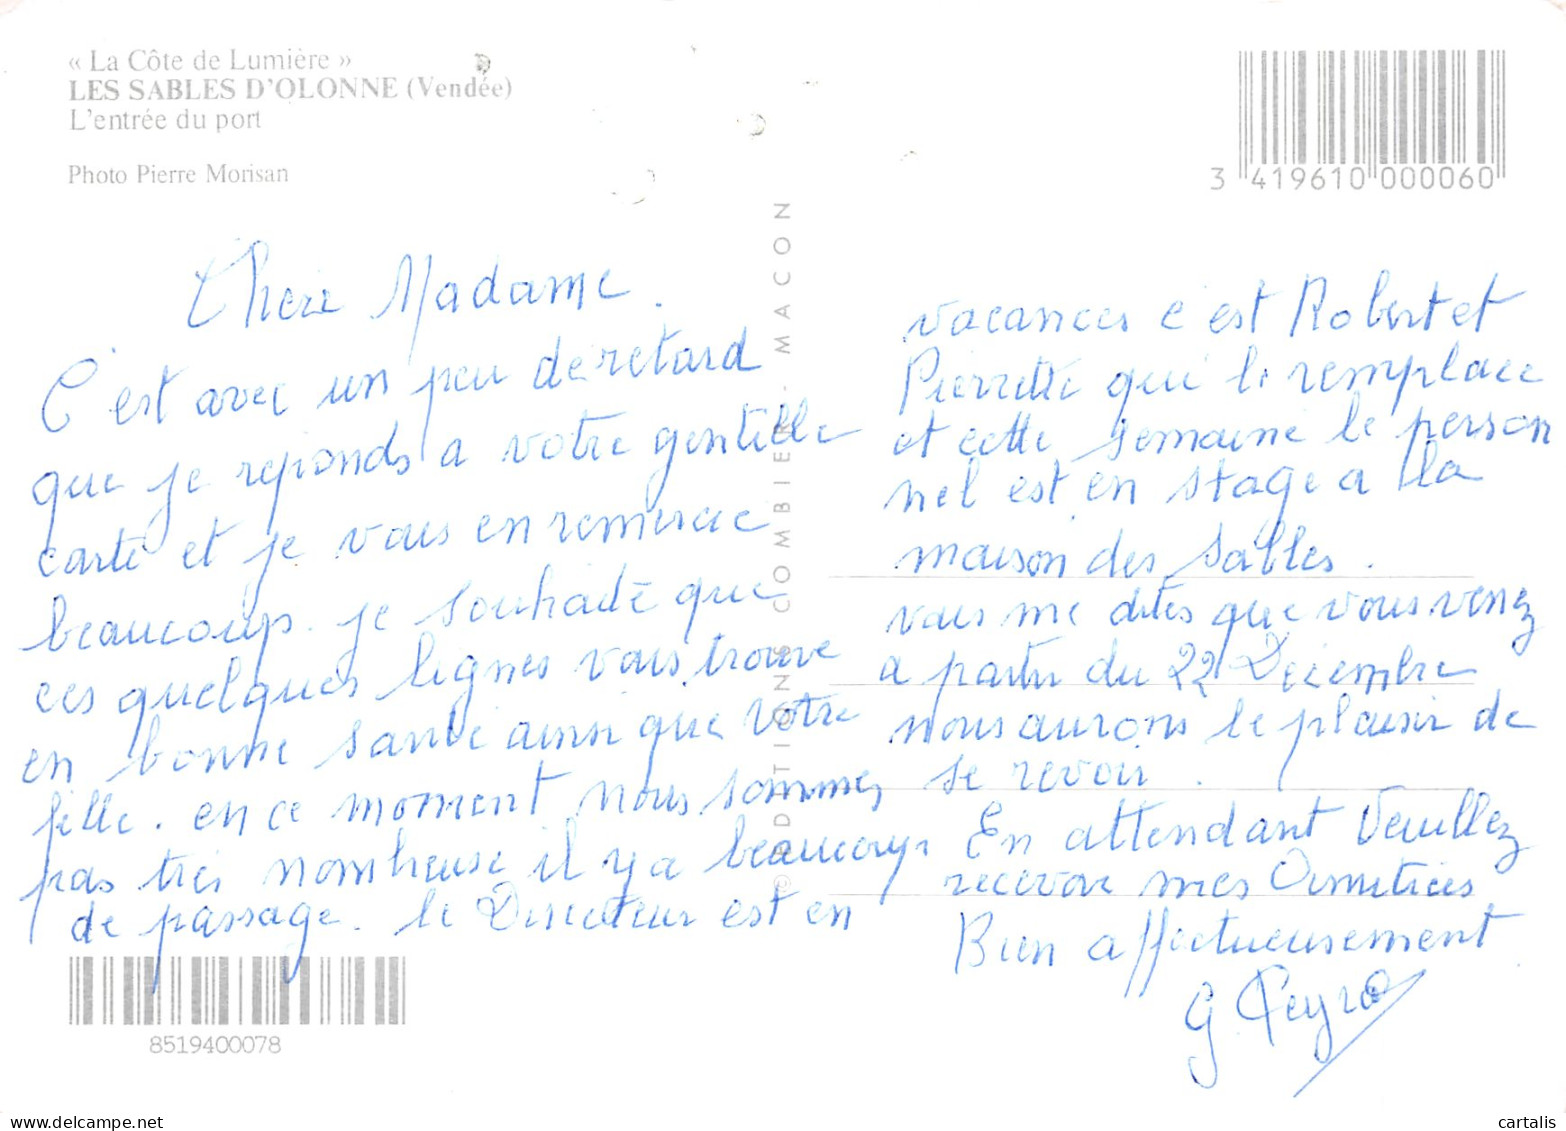 « La Côte de Lumière »
LES SABLES D'OLONNE (Vendée)
L'entrée du port
Photo Pierre Morisan
3 419610 000060
© EDITIONS COMBIER - MACON
Chere Madame.
C'est avec un peu de retard
que je reponds a votre gentille
carte et je vous en remercie
beaucoup. je souhaite que
ces quelques lignes vous trouve
en bonne santé ainsi que votre
fille. en ce moment nous sommes
pas très nombreuse il y a beaucoup
de passage. le Directeur est en
vacances c'est Robert et
Pierrette qui le remplace
et cette semaine le person
nel est en stage a la
maison des Sables.
vous me dites que vous venez
a partir du 22 Décembre
nous aurons le plaisir de
se revoir.
En attendant Veuillez
recevoir mes Amitiées
Bien affectueusement
G Peyro
8519400078
cartalis
www.delcampe.net